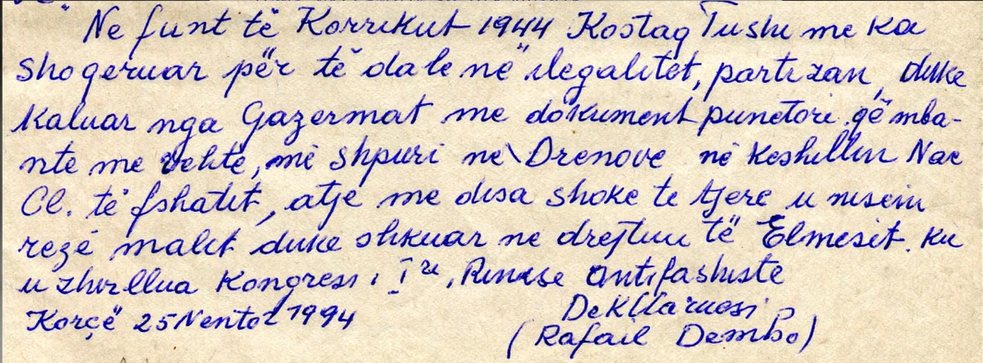 Ne funt të Korrikut 1944 Kostaq Tushi me ka
shoqeruar për të dale në ilegalitet, partizan, duke
kaluar nga Gazermat me dokument punetori që mba-
nte me vehte, më shpuri në Drenove në keshillin Nac
Cl. të fshatit, atje me disa shoke te tjere u nisëm
rezë malit duke shkuar ne drejtim të Elmesit. ku
u zhvillua Kongresi i Irë, Rinise antifashiste
Korçë 25 Nentor 1994 Deklaruesi
(Rafail Dembo)